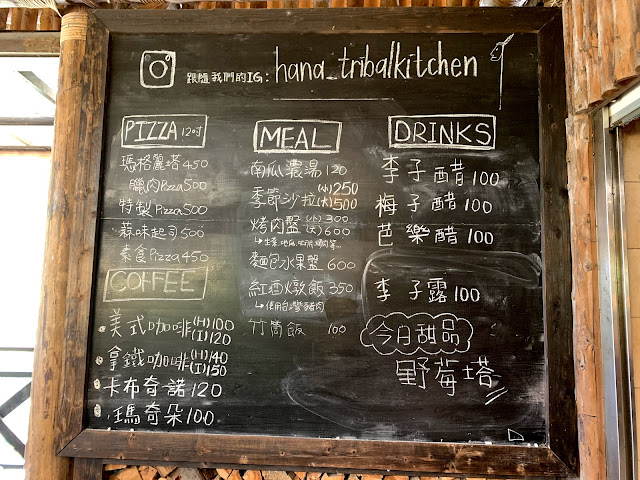 跟隨我們的IG: hana_tribalkitchen
PIZZA 12吋
瑪格麗塔 450
臘肉Pizza 500
特製Pizza 500
蒜味起司 500
素食Pizza 450
COFFEE
美式咖啡 (H) 100
(I) 120
拿鐵咖啡 (H) 140
(I) 150
卡布奇諾 120
瑪奇朵 100
MEAL
南瓜濃湯 120
季節沙拉 (小) 250
(大) 500
烤肉盤 (小) 300
(大) 600
麵包水果盤 600
紅酒燉飯 350
↳使用台灣豬肉
竹筒飯 100
DRINKS
李子醋 100
梅子醋 100
芭樂醋 100
李子露 100
今日甜品
野莓塔